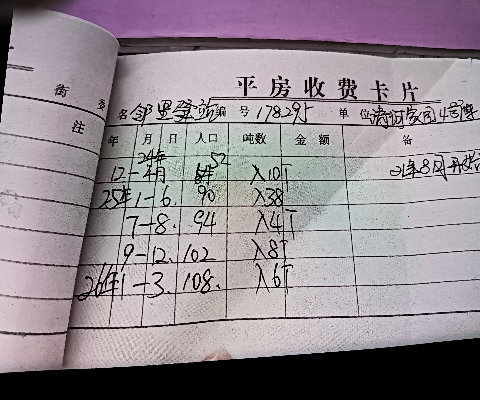 平房收费卡片
街 委
名 邻里驿站 编号 178295 单位 清河家园4号楼
注
年 月 日 人口 吨数 金额 备
24年 52
12-2月 入10T 21年8月开始
25年1-6. 90 入38
7-8. 94 入4T
9-12. 102 入8T
26年1-3. 108. 入6T